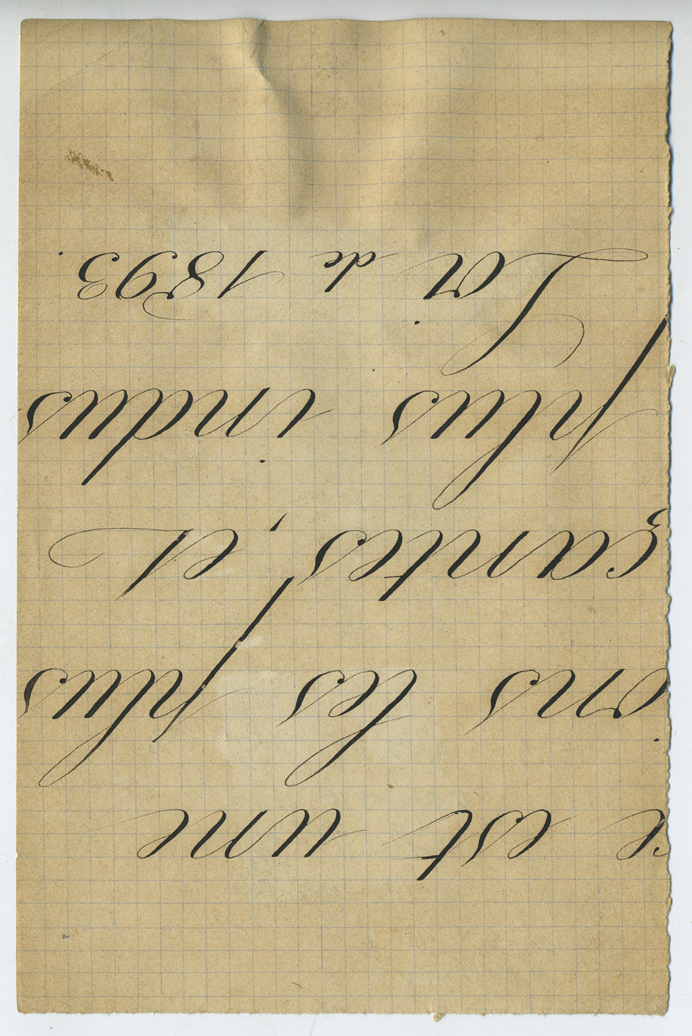 e est une
ons les plus
çantes, et
plus indus
Loi de 1893.